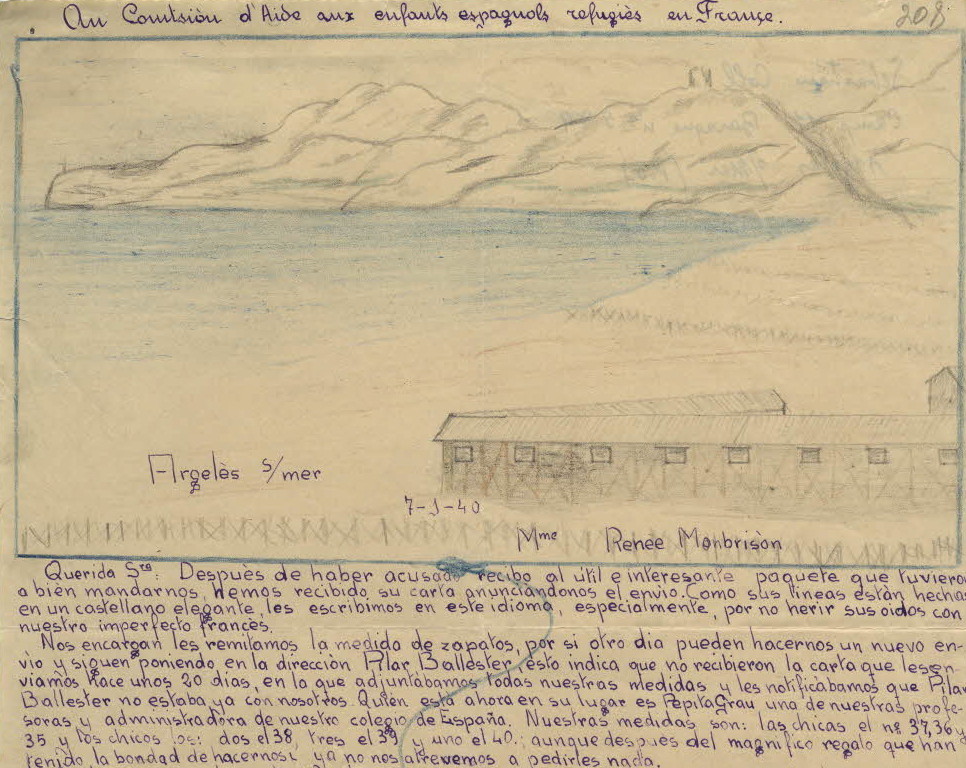 Au Comitsiòn d'Aide aux enfants espagnols refugiès en Françe.
208
Argelès s/mer
7-1-40
Mme Renèe Monbrisòn
Querida Sra: Despuès de haber acusado recibo al útil e interesante paquete que tuviero
a bién mandarnos, hemos recibido su carta anunciándonos el envio. Como sus lineas están hechas
en un castellano elegante, les escribimos en este idioma, especialmente, por no herir sus oidos con
nuestro imperfecto francès.
Nos encargan les remitamos la medida de zapatos, por si otro dia pueden hacernos un nuevo en-
vio y siguen poniendo en la dirección Pilar Ballester, èsto indica que no recibieron la carta que les en-
viamos hace unos 20 dias, en la que adjuntàbamos todas nuestras medidas y les notificàbamos que Pilar
Ballester no estaba ya con nosotros. Quièn està ahora en su lugar es Pepita Grau una de nuestras profe-
soras y administradora de nuestro colegio de España. Nuestras medidas son: las chicas el nº 37, 36 y
35 y los chicos los: dos el 38, tres el 39 y uno el 40.; aunque despuès del magnifico regalo que han
tenido la bondad de hacernos, ya no nos atrevemos a pedirles nada.